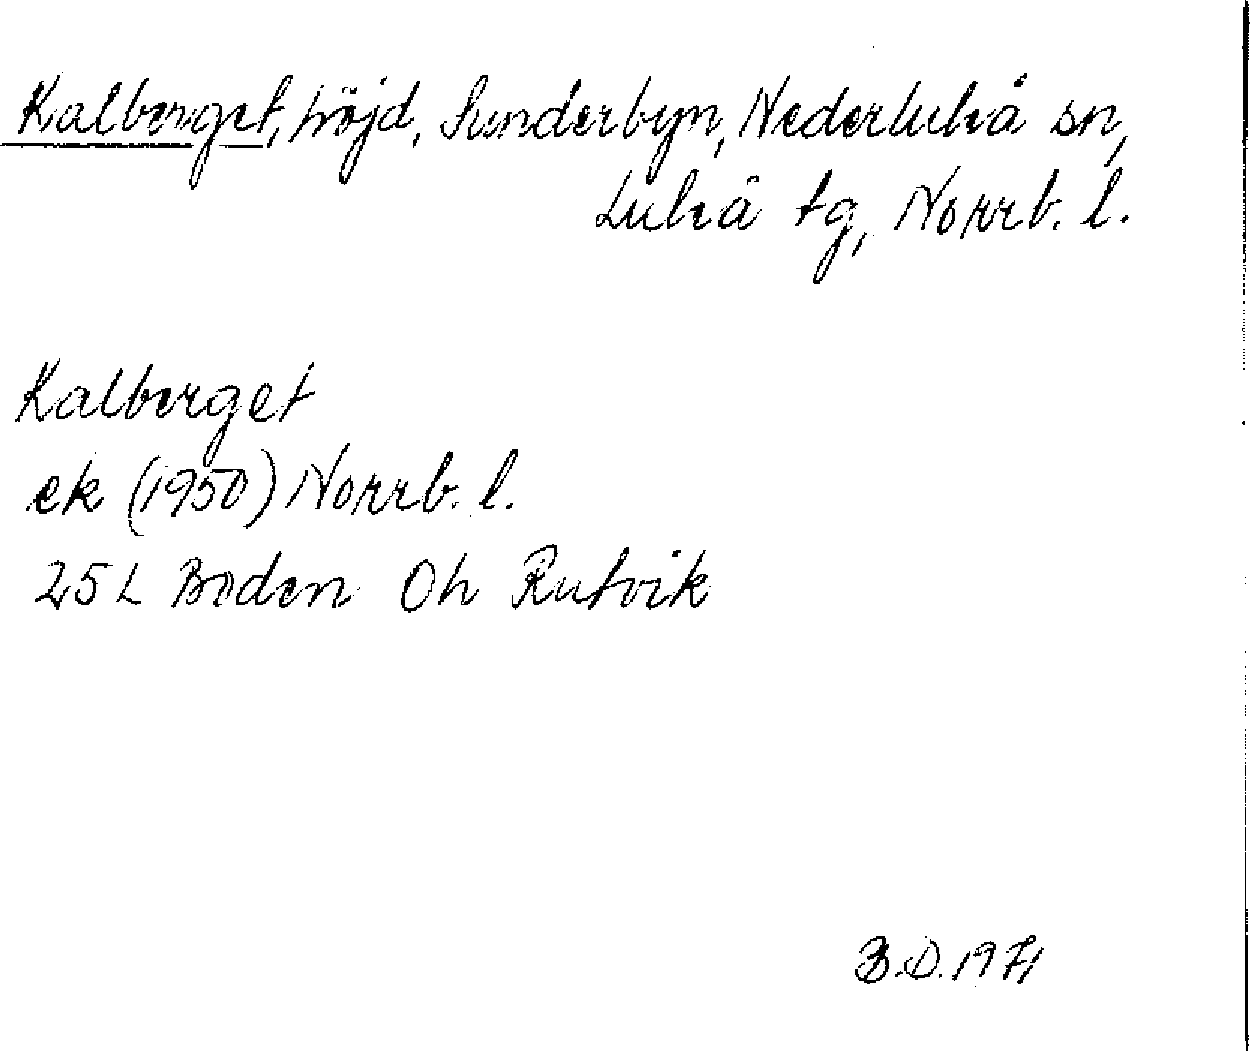 Kalberget, höjd, Sunderbyn, Nederluleå sn,
Luleå tg, Norrb. l.
Kalberget
ek (1950) Norrb. l.
25 L Boden 0h Rutvik
B.D. 1971